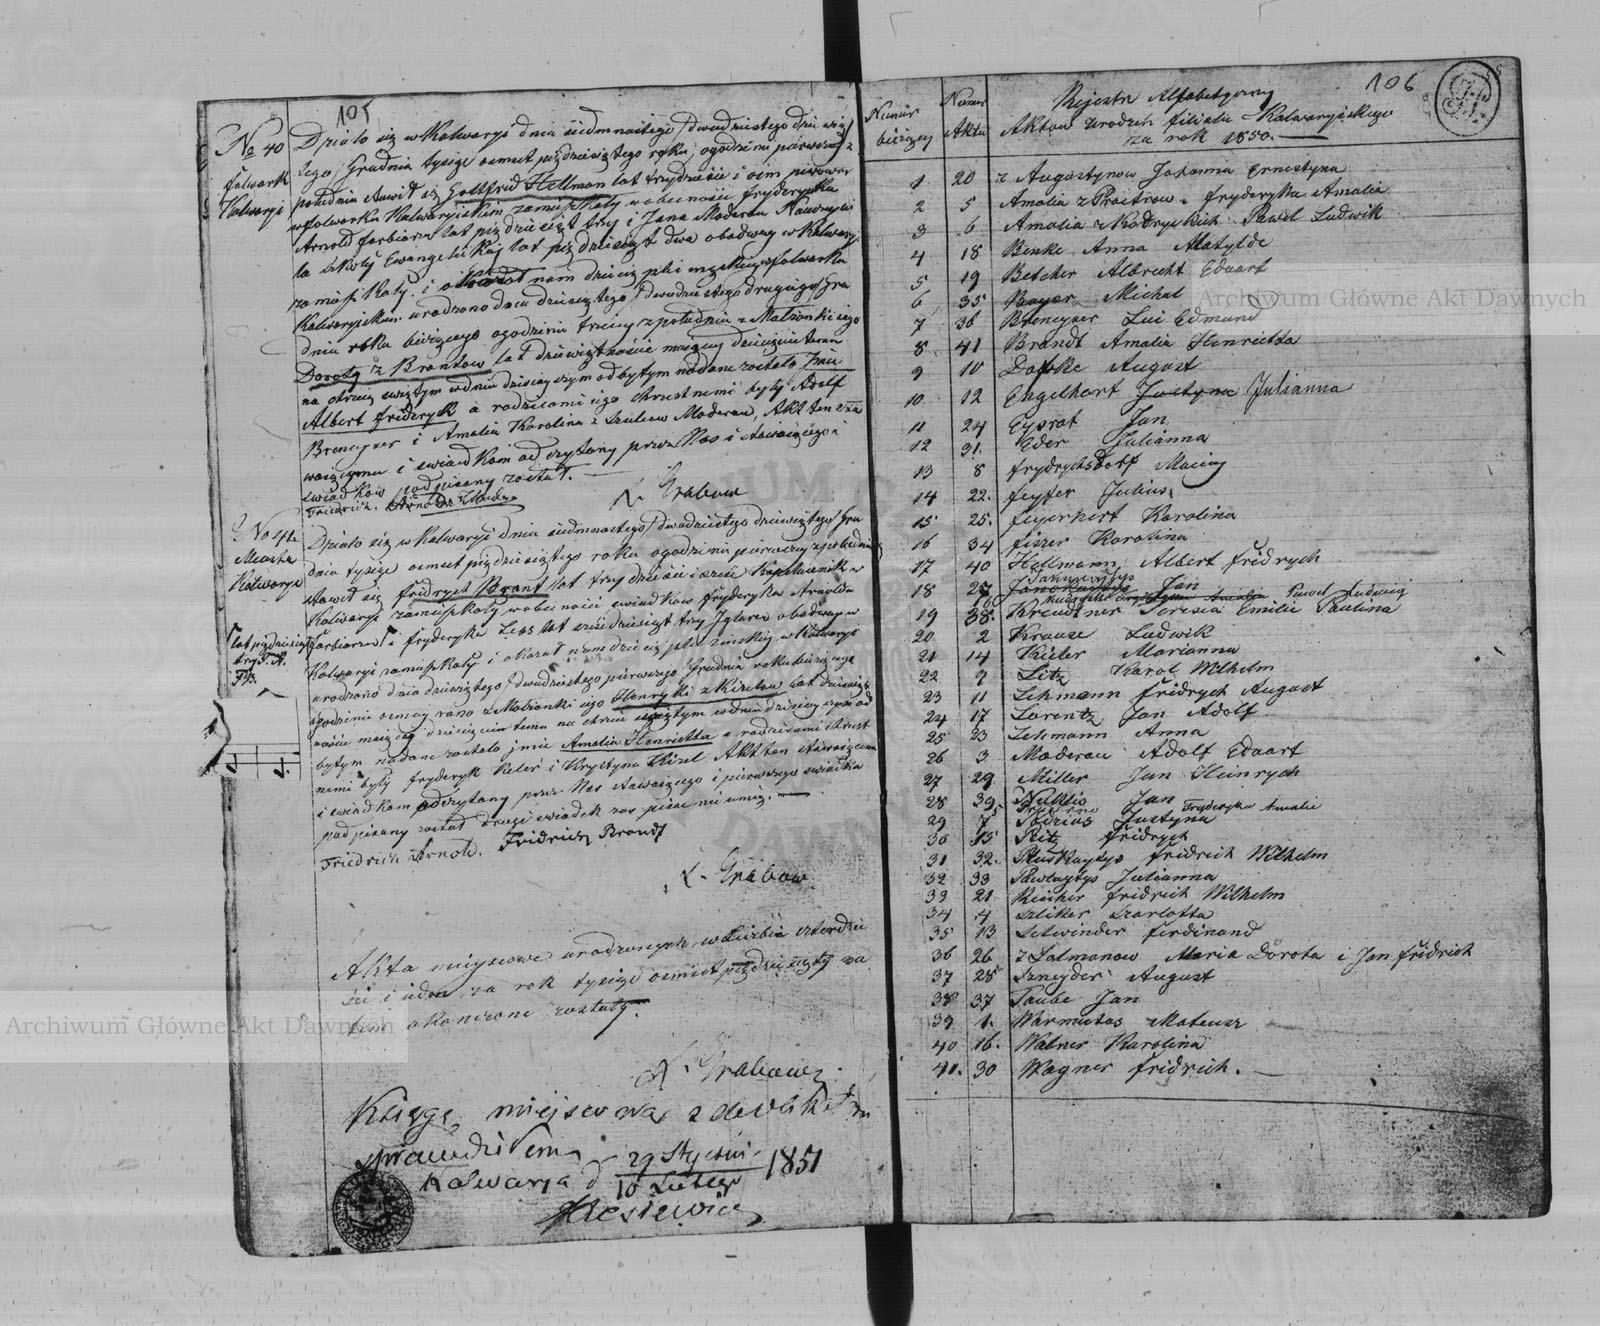 105
No 40
folwark
Kalwaryi
Działo się w Kalwaryi dnia siedmnastego /dwudziestego dziewią/
tego/ Grudnia tysiąc ośmset pięćdziesiątego roku, o godzinie pierwszej z
południa stawił się Gottfrid Hellman lat trzydzieście i ośm piwowar
w folwarku Kalwaryiskim zamieszkały w obecności fryderyka
Arnold farbiarza lat pięćdziesiąt trzy i Jana Moderau Nauczycie
la szkoły Ewangelickiej lat pięćdziesiąt dwa obadway w Kalwaryi
zamieszkały i okazał nam dziecię płci męzkiej w folwarku
Kalwaryiskim urodzone dnia dziesiątego /dwudziestego drugiego/ Gru
dnia roku bieżącego o godzinie trzeciej z południa z Małżonki jego
Doroty z Brantow lat dziewiętnaście mającej dziecięciu temu
na chrzcie świętym w dniu dzisiejszym odbytym nadane zostało Imie
Albert fridryk a rodzicami jego chrestnemi byli Adolf
Brenejzer i Amalia Karolina z Szulcow Moderau, Akt ten stawa
wającemu i swiadkom odczytany przez Nas i stawającego i
swiadkow podpisany został.
Friedrich Arnold
A. Grabow
No 41
Miasto
Kalwarya
Działo się w Kalwaryi dnia siedmnastego /dwudziestego dziewiątego/ Gru
dnia tysiąc ośmset pięćdziesiątego roku o godzinie pierwszej z południa
stawił się fridrych Brant lat trzydzieście i sześć Kapelusznik w
Kalwaryi zamieszkały w obecności swiadkow fryderyka Arnolda
lat pięćdziesiąt
trzy F. A.
F. B.
farbiarza i fryderyka Less lat sześćdziesiąt trzy Iglarza obadway w
Kalwaryi zamieszkały i okazał nam dziecię płci zeńskiej w Kalwaryi
urodzone dnia dziewiątego /dwudziestego pierwszego/ Grudnia roku bieżącego
o godzinie osmej rano z Małżonki jego Henryki z Kizelow lat dziewięt
naście mającej dziecięciu temu na chrzcie świętym w dniu dzisiejszym od
bytym nadane zostało imie Amalia Henrietta a rodzicami chrest
nemi byli fryderyk Keler i Krystyna Kizel Akt ten stawającemu
i swiadkom odczytany przez Nas stawającego i pierwszego swiadka
podpisany został drugi swiadek zas pisać nie umie.
Friedrich Arnold. Fridrich Brandt
A. Grabow.
Akta miejscowe urodzonych w liczbie czterdzie
ści i jeden za rok tysiąc ośmset pięćdziesiąty za
tem ukonczone zostały.
A. Grabow
Księgę miejscową z dwoma
sprawdziłem
Kalwarya d 29 Stycznia / 10 Lutego 1851
106
Numer bieżący
Numer Aktu
Rejestr Alfabetyczny
Aktow urodzeń filiału Kalwaryiskiego
za rok 1850.
1 20 z Augustynow Johanna Ernestyna
2 5 Amalia z Prostrow. fryderyka Amalia
3 6 Amalia z Kodryckich Pawel Ludwik
4 18 Benke Anna Matylde
5 19 Betcher Albrecht Eduart
6 35 Boyer Michal
7 36 Brenejzer Lui Edmund
8 41 Brandt Amalia Henrietta
9 10 Dopke August
10 12 Engelhart Justyna Julianna
11 24 Eysrat Jan
12 31. Eder Julianna
13 8 frydrychsdorf Maciey
14 22. feyfer Julius
15 25. feyerhert Karolina
16 34 fiszer Karolina
17 40 Hellmann Albert fridrych
18 27 Jankowajtys Jan
Pawel Ludwig
19 38. Kreudtner Teresia Emilie Paulina
20 2 Krause Ludwik
21 14 Kieler Marianna
22 9 Litz Karol Wilhelm
23 11 Lehmann fridrych August
24 17 Lorentz Jan Adolf
25 23 Lehmann Anna
26 3 Moderau Adolf Eduart
27 29 Miller Jan Heinrych
28 39 Nuklis Jan
fryderyka Amalie
29 7 Podzius Justyna
30 15 Pitz fridrych
31 32. Pluskaytys fridrich Wilhelm
32 33 Pawlaytys Julianna
33 21 Riecher fridrich Wilhelm
34 4 Szliker Szarlotta
35 13 Szlwinder ferdinand
36 26 z Salmonow Maria Dorota i Jan fridrich
37 28 Sznejder August
38 37 Taube Jan
39 1. Warmutas Mateusz
40 16. Wabner Karolina
41. 30 Wagner fridrich.
Archiwum Główne Akt Dawnych
Archiwum Główne Akt Dawnych